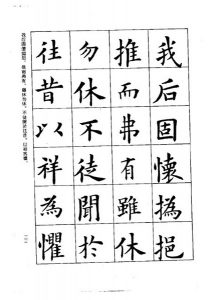 我后固懷撝挹
推而弗有雖休
勿休不徒聞於
往昔以祥為懼
我后固懷撝挹,推而弗有,雖休勿休,不徒聞於往昔,以祥為懼。